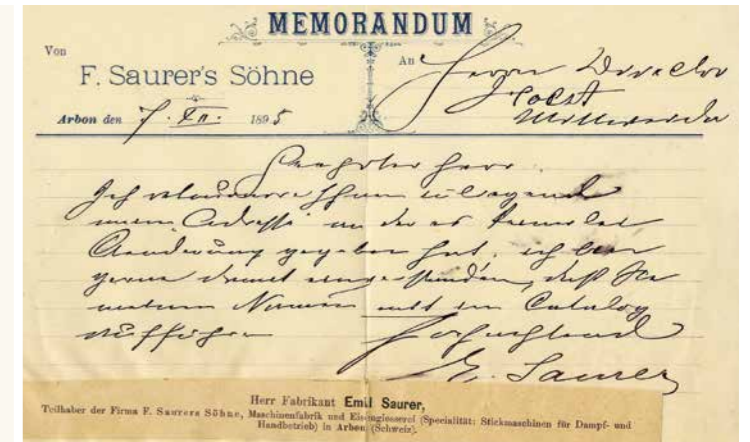 MEMORANDUM
Von
F. Saurer's Söhne
Arbon den 7. XII. 1895
An Herrn Director
Probst
Mittweida
Geehrter Herr
Ich retourniere Ihnen
meine Adresse an der es
Aenderung gegeben hat, ich bin
gerne damit einverstanden, daß Sie
meinen Namen mit im Catalog
aufführen
Hochachtend
E. Saurer
Herr Fabrikant Emil Saurer,
Teilhaber der Firma F. Saurers Söhne, Maschinenfabrik und Eisengiesserei (Specialität: Stickmaschinen für Dampf- und
Handbetrieb) in Arbon (Schweiz).